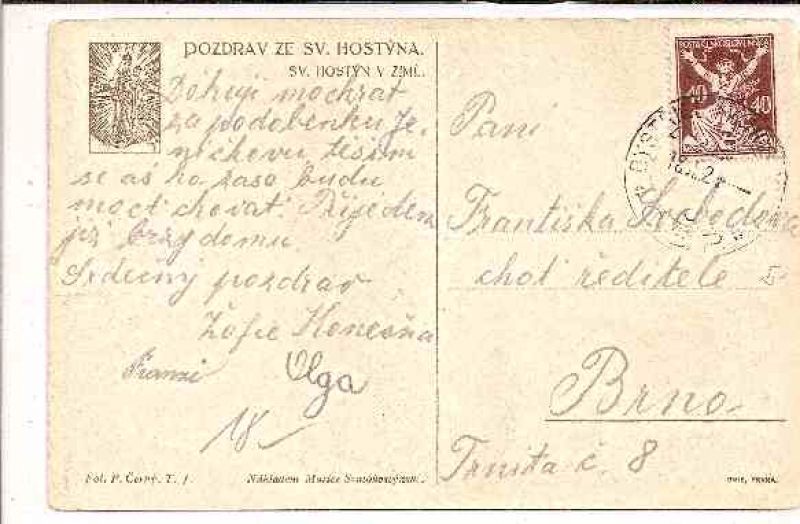 POZDRAV ZE SV. HOSTÝNA.
SV. HOSTÝN V ZIMĚ.
Děkuji mockrát
za podobenku Je-
níčkovu těším
se až ho zase budu
moct chovat. Přijedem
již brzy domu.
Srdečný pozdrav
Žofie Konečná
Franzi Olga
18
Fot. P. Černý, T. J. Nákladem Matice Svatohostýnské.
Paní
Františka Svobodova
choť ředitele
Brno
Trnitá č. 8
40 40
UNIE, PRAHA.